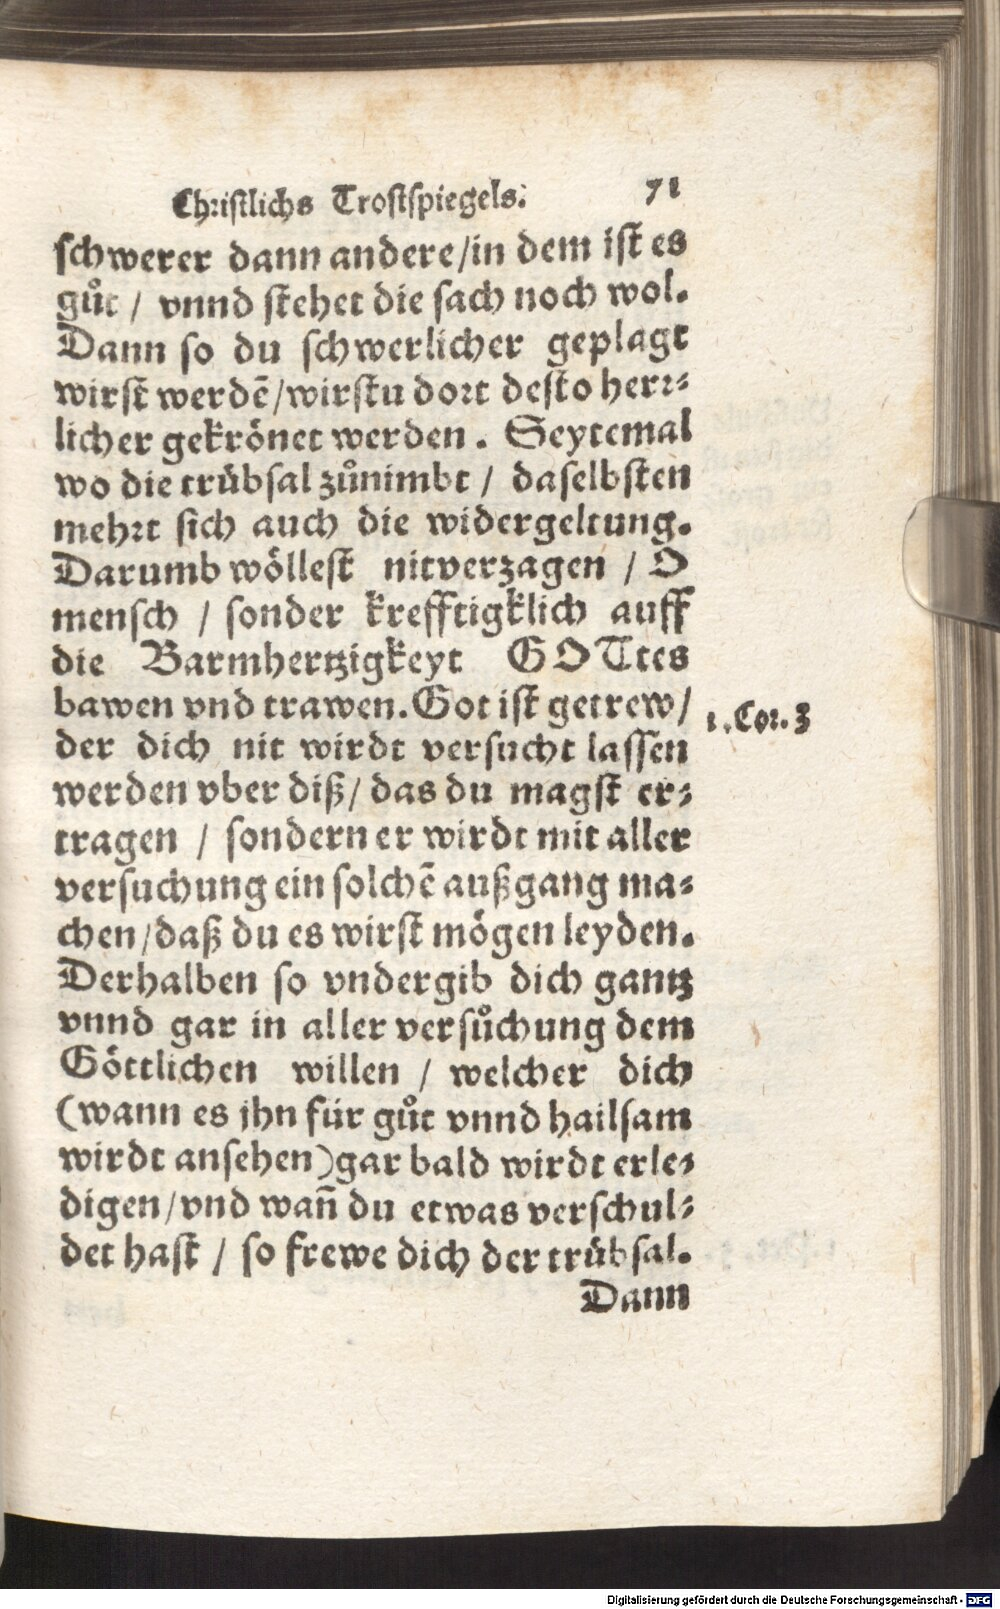 Christlichs Trostspiegels. 71
schwerer dann andere/in dem ist es
gůt / vnnd stehet die sach noch wol.
Dann so du schwerlicher geplagt
wirst werdē/wirstu dort desto herr⸗
licher gekrönet werden. Seytemal
wo die trübsal zůnimbt / daselbsten
mehrt sich auch die widergeltung.
Darumb wöllest nitverzagen / O
mensch / sonder krefftigklich auff
die Barmhertzigkeyt GOTtes
bawen vnd trawen. Got ist getrew/
1. Cor. 3
der dich nit wirdt versucht lassen
werden vber diß/ das du magst er⸗
tragen / sondern er wirdt mit aller
versuchung ein solchē außgang ma⸗
chen/daß du es wirst mögen leyden.
Derhalben so vndergib dich gantz
vnnd gar in aller versůchung dem
Göttlichen willen / welcher dich
(wann es jhn für gůt vnnd hailsam
wirdt ansehen)gar bald wirdt erle⸗
digen/vnd wañ du etwas verschul⸗
det hast / so frewe dich der trübsal.
Dann
Digitalisierung gefördert durch die Deutsche Forschungsgemeinschaft - DFG